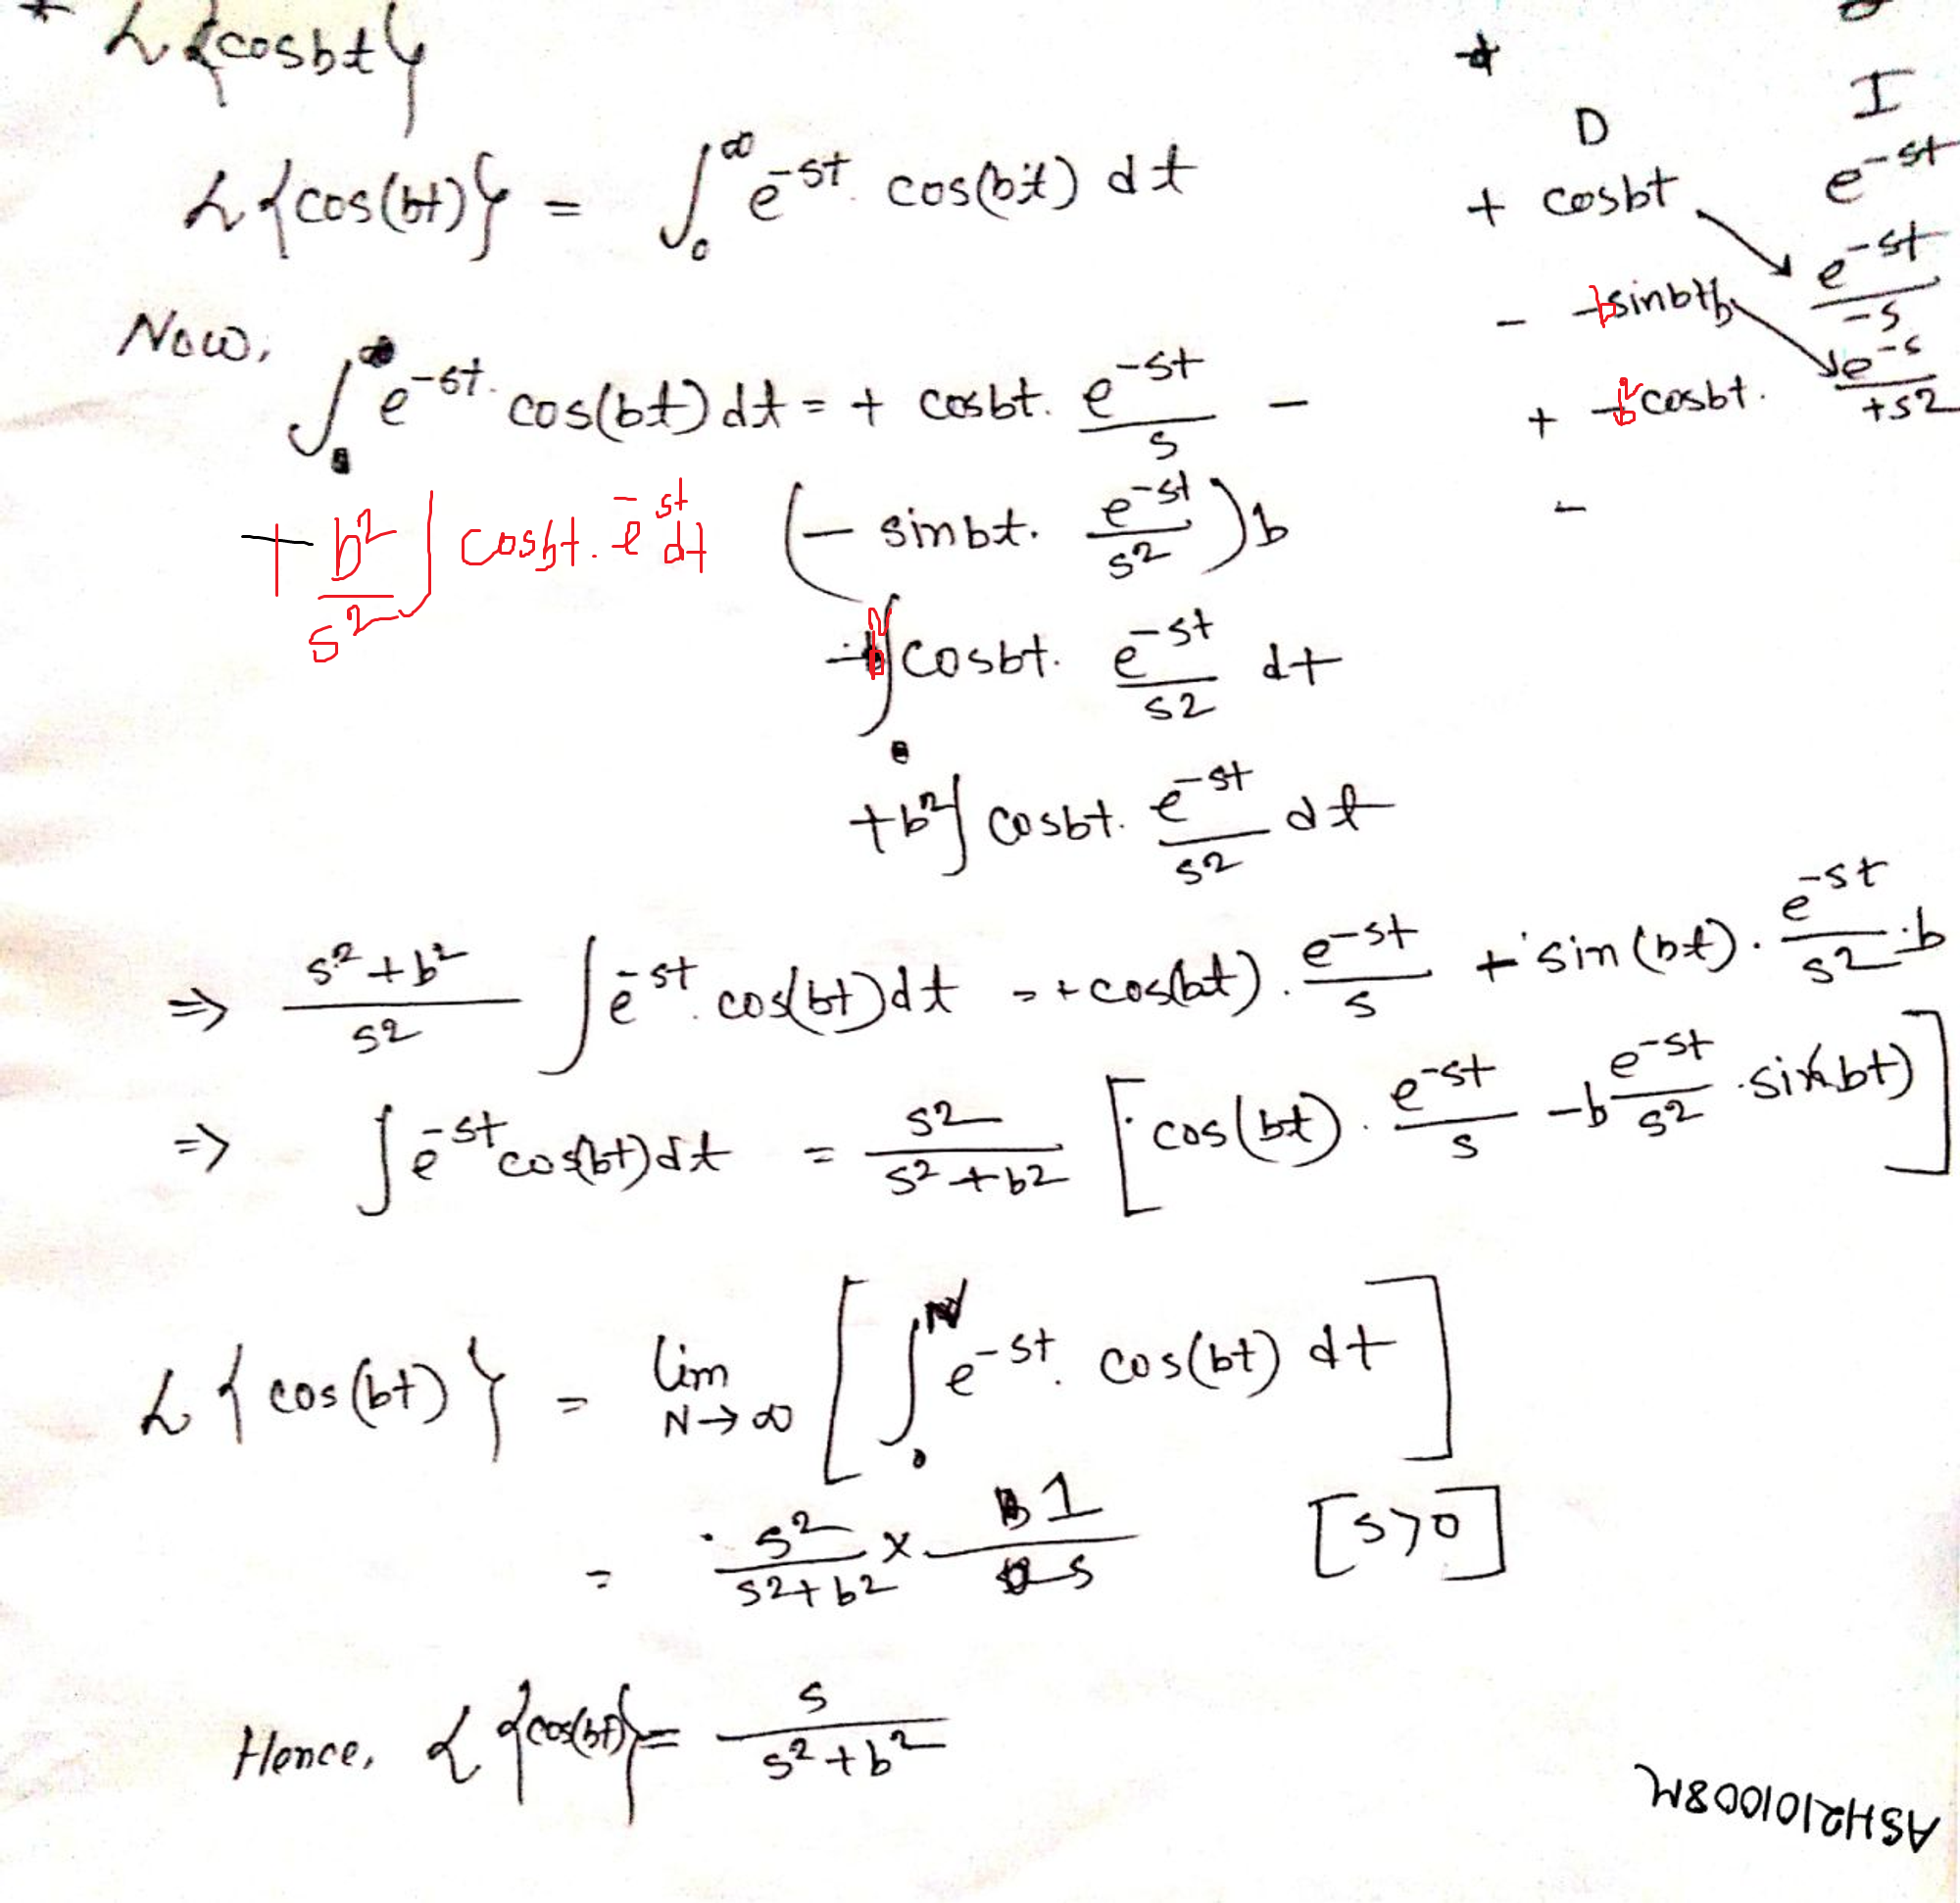 * L{cosbt}
L{cos(bt)} = ∫₀^∞ e^-st. cos(bt) dt
D I
+ cosbt e^-st
- -bsinbt e^-st/-s
+ -b²cosbt. e^-s/+s2
-
Now,
∫ e^-st. cos(bt) dt = + cosbt. e^-st/s -
(- sinbt. e^-st/s²) b
+ b²/s² ∫ cosbt. e^-st dt
∫ cosbt. e^-st/s2 dt
+b² ∫ cosbt. e^-st/s² dt
=> s²+b²/s² ∫ e^-st. cos(bt) dt = + cos(bt). e^-st/s + sin(bt). e^-st/s2 .b
=> ∫ e^-st cos(bt) dt = s2/s²+b2 [cos(bt). e^-st/s - b e^-st/s² .sin(bt)]
L{cos(bt)} = lim N→∞ [∫₀^N e^-st. cos(bt) dt]
= s²/s2+b2 x 1/s [s>0]
Hence, L{cos(bt)} = s/s²+b²
ASH2101008M